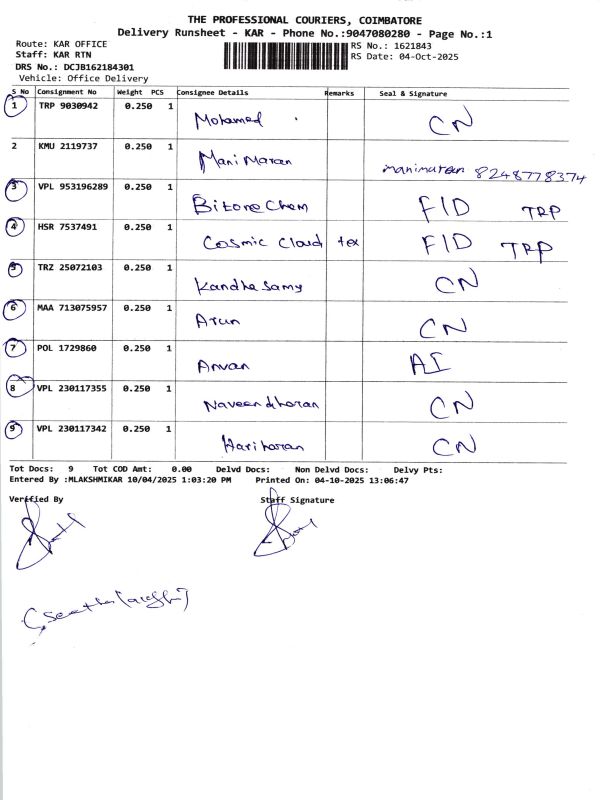 THE PROFESSIONAL COURIERS, COIMBATORE
Delivery Runsheet - KAR - Phone No.:9047080280 - Page No.:1
Route: KAR OFFICE
RS No.: 1621843
Staff: KAR RTN
RS Date: 04-Oct-2025
DRS No.: DCJB162184301
Vehicle: Office Delivery
S No Consignment No Weight PCS Consignee Details Remarks Seal & Signature
1 TRP 9030942 0.250 1 Mohamed CN
2 KMU 2119737 0.250 1 Mani Maran manimaran 8248778374
3 VPL 953196289 0.250 1 Bitone Chem FID TRP
4 HSR 7537491 0.250 1 Cosmic Cloud tex FID TRP
5 TRZ 25072103 0.250 1 Kandha Samy CN
6 MAA 713075957 0.250 1 Arun CN
7 POL 1729860 0.250 1 AI
8 VPL 230117355 0.250 1 Naveendharan CN
9 VPL 230117342 0.250 1 Hariharan CN
Tot Docs: 9 Tot COD Amt: 0.00 Delvd Docs: Non Delvd Docs: Delvy Pts:
Entered By :MLAKSHMIKAR 10/04/2025 1:03:20 PM Printed On: 04-10-2025 13:06:47
Verified By Staff Signature